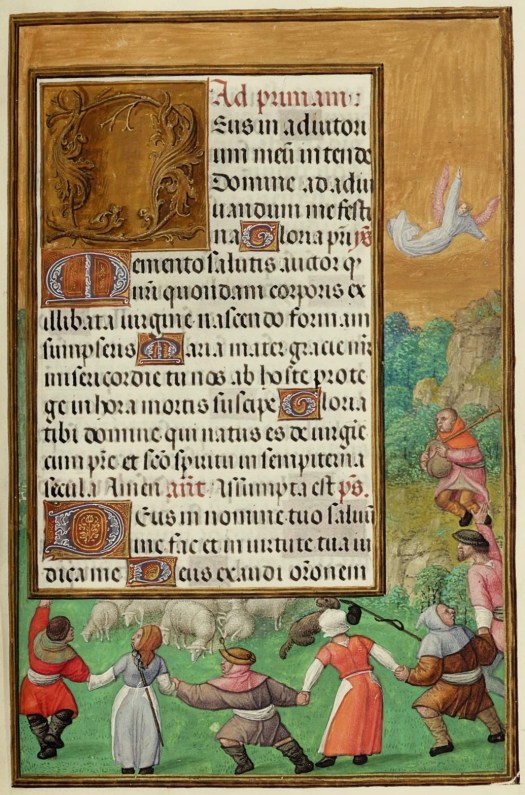 Ad primam:
Deus in adiutori
um meū intende
Domine ad adiu
uandum me festi
na Gloria pr̄i ps̄
Memento salutis auctor qͥ
nr̄i quondam corporis ex
illibata uirgine nascendo formam
sumpseris Maria mater gracie mr̄
misericordie tu nos ab hoste prote
ge in hora mortis suscipe Gloria
tibi domine qui natus es de uirgīe
cum pr̄e et sc̄o spiritu in sempiterna
secula Amen ant̄ Assumpta est ps̄.
Deus in nomine tuo saluū
me fac et in uirtute tua iu
dica me Deus exaudi or̄onem